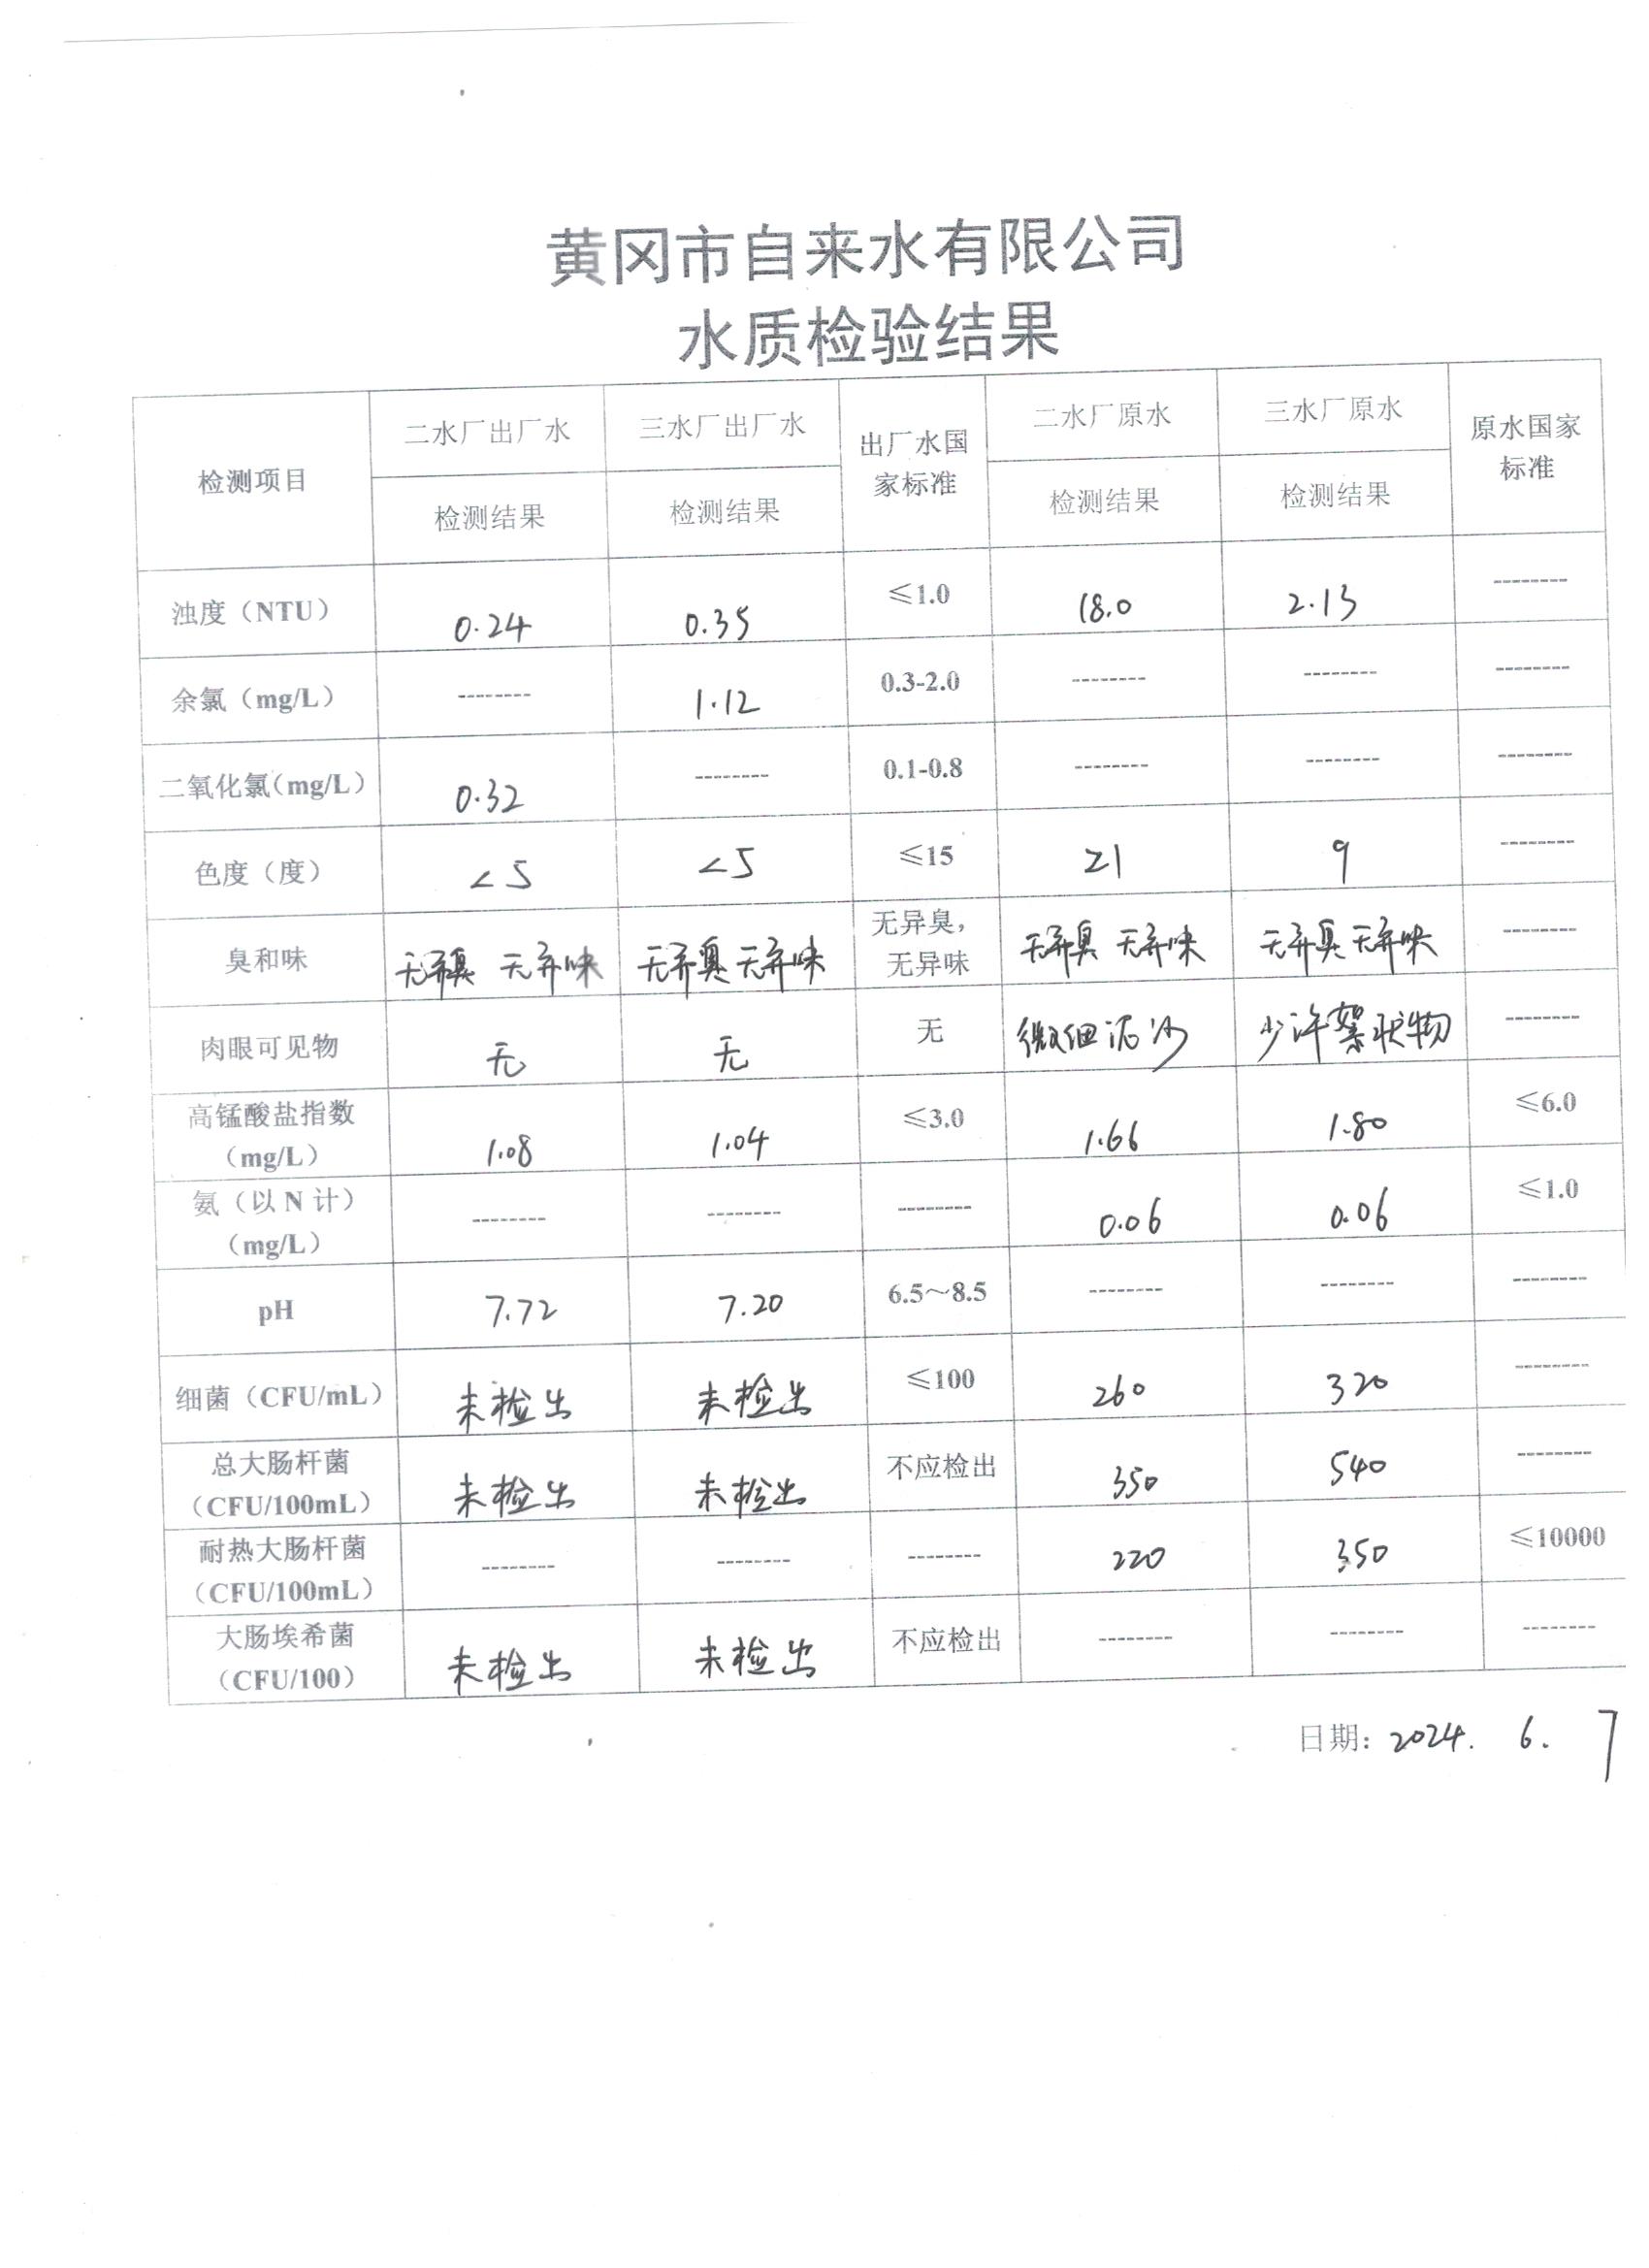 黄冈市自来水有限公司
水质检验结果
检测项目 二水厂出厂水 三水厂出厂水 出厂水国家标准 二水厂原水 三水厂原水 原水国家标准
检测结果 检测结果 检测结果 检测结果
浊度（NTU） 0.24 0.35 ≤1.0 18.0 2.13 --------
余氯（mg/L） -------- 1.12 0.3-2.0 -------- -------- --------
二氧化氯(mg/L) 0.32 -------- 0.1-0.8 -------- -------- --------
色度（度） <5 <5 ≤15 21 9 --------
臭和味 无异臭 无异味 无异臭 无异味 无异臭，无异味 无异臭 无异味 无异臭 无异味 --------
肉眼可见物 无 无 无 微细泥沙 少许絮状物 --------
高锰酸盐指数（mg/L） 1.08 1.04 ≤3.0 1.66 1.80 ≤6.0
氨（以 N 计）（mg/L） -------- -------- -------- 0.06 0.06 ≤1.0
pH 7.72 7.20 6.5～8.5 -------- -------- --------
细菌（CFU/mL） 未检出 未检出 ≤100 260 320 --------
总大肠杆菌（CFU/100mL） 未检出 未检出 不应检出 350 540 --------
耐热大肠杆菌（CFU/100mL） -------- -------- -------- 220 350 ≤10000
大肠埃希菌（CFU/100） 未检出 未检出 不应检出 -------- -------- --------
日期: 2024. 6. 7